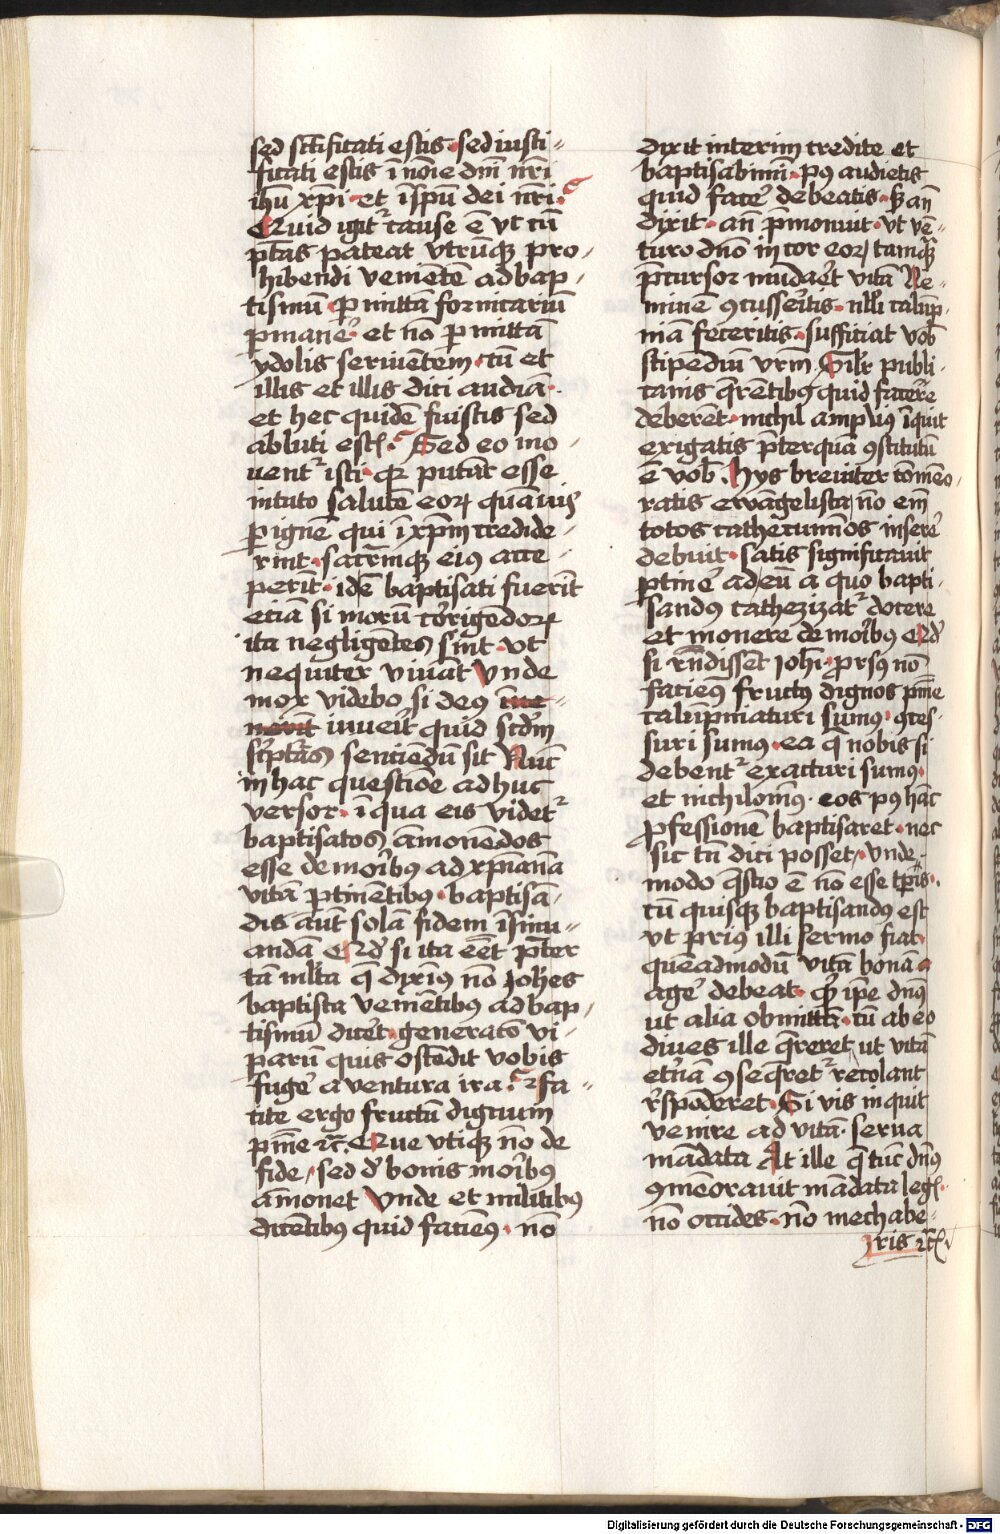 sed sct̄ificati estis · sed iusti-
ficati estis ī nōīe dnī nr̄i
ihū xp̄i · et ī sp̄u dei nr̄i ·
Quid igit᷑ cause ē vt cū
pt̄as pateat vtrūqꝫ pro-
hibendi venientē ad bap-
tismū · ꝑmittā fornicariū
ꝑmane᷑ · et nō ꝑmittā
ydolis seruientem · cū et
illis et illis dici audiā ·
et hec quidē fuistis sed
abluti estꝭ · Sed eo mo-
uent᷑ isti · qꝛ putāt esse
intuto salutē eoꝝ quāuis
ꝑ ignē qui ī xp̄m credide-
rint · sacrm̄qꝫ eiꝰ acce-
perīt · idē baptisati fuerīt
etiā si morū corrigēdoꝝ
ita negligētes sint · vt
nequiter viuāt Vnde
mox videbo si deꝰ
iuue᷑it quid scd̄m
sc᷑pt᷑as sentiēdū sit Nūc
in hac questiōe adhuc
versor · ī qua eis videt᷑
baptisatos āmonēdos
esse de mo᷑ibꝰ ad xp̄ianā
vitā ꝑtinētibꝰ · baptisā-
dis aut̄ solā fidem īsinu-
andā Qd̓ si ita eēt p̄ter
tā ml̄ta q̄ dixiꝰ nō Joh̄es
baptista veniētibꝰ ad bap-
tismū dice᷑t · generatō vi-
parū quis ostēdit vobis
fuge᷑ a ventura ira · fa-
cite ergo fructū dignum
pn̄ie ⁊c̄ · Que vtiqꝫ nō de
fide / sed d̓ bonis mo᷑ibꝰ
āmonet Vnde et militibꝰ
dicētibꝰ quid faciēꝰ · nō
dixit interim credite et
baptisabimī · pꝰ audietis
quid face᷑ debeatis · Sꝫ an̄
dixit · an̄ p̄monuit · vt vē-
turo dn̄o in cor eoꝝ tamqꝫ
p̄cursor mūda᷑et vitā Ne-
minē ꝯcusse᷑itis · nll̓i calūp-
niā feceritis · sufficiat vob̄
stipediū vrm̄ · Silr̄ publi-
canis q̄rētibꝰ quid facere
deberēt · nichil ampliꝰ īquit
exigatis p̄terquā ꝯstitutū
ē vob̄ · Hys breuiter cōmēo-
ratis ewāgelista / nō em̄
totos cathecumīos insere᷑
debuit · satis significauit
ꝑtine᷑ ad eū a quo bapti-
sandꝰ cathezizat᷑ docere
et monere de mo᷑ibꝰ Qd̓
si rn̄dissēt Joh̄i · prorsꝰ nō
facieꝰ fructꝰ dignos pn̄ie
calūpniaturi sumꝰ · g̓res-
suri sumꝰ · ea q̄ nobis nō
debent᷑ exacturi sumꝰ ·
et nichilominꝰ · eos pꝰ hāc
ꝓfessionē baptisaret · nec
sic tn̄ dici posset / vnde
modo q̄stio ē nō esse tp̄is ·
cū quisqꝫ baptisandꝰ est
vt priꝰ illi sermo fiat ·
quēadmodū vitā bonā
age᷑ debeat · Qꝫ ip̄e dn̄s
ut alia obmittā · cū ab eo
diues ille q̄reret ut vitā
et᷑nā ꝯseq̄ret᷑ recolant
r̄sponderet · Si vis inquit
venire ad vitā · serua
mādata At ille q̄ tūc dn̄s
ꝯmēorauit mādata legꝭ ·
nō occides · nō mechabe-
ris ⁊c̄
Digitalisierung gefördert durch die Deutsche Forschungsgemeinschaft - DFG